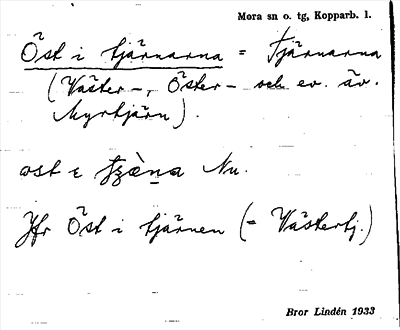 Mora sn o. tg, Kopparb. l.
Öst i tjärnarna = Tjärnarna
(Väster-, Öster- och ev. äv.
Myrtjärn).
ost ε
Nu.
Jfr Öst i tjärnen (= Västertj.)
Bror Lindén 1933